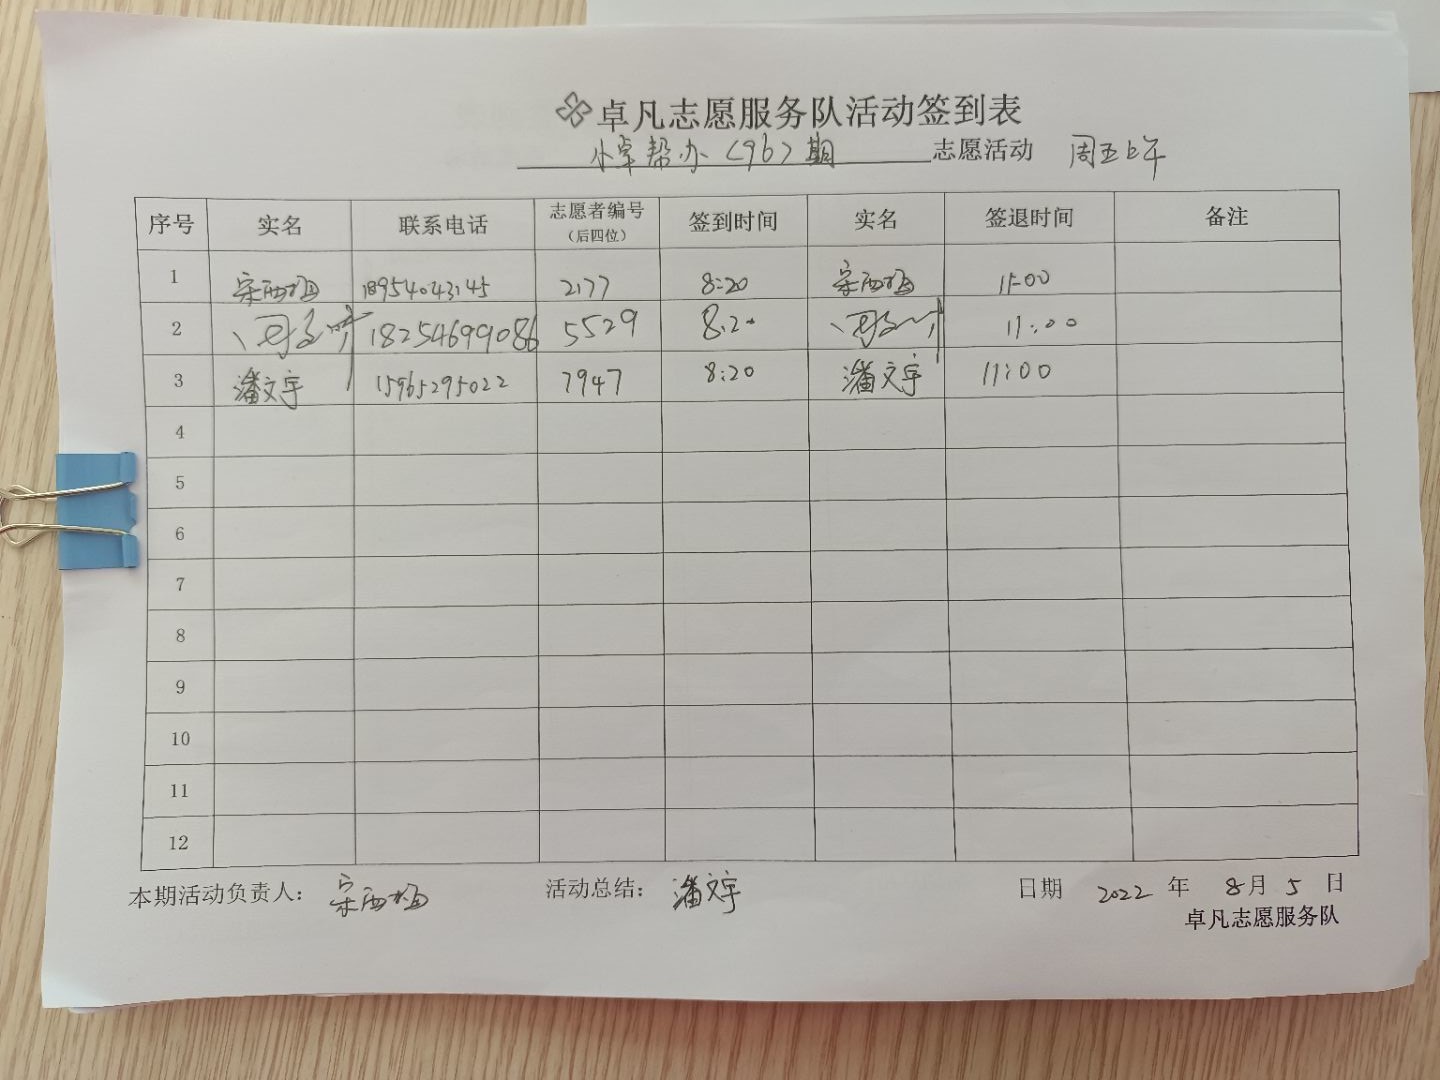 卓凡志愿服务队活动签到表
小卓帮办<96>期 志愿活动 周五上午
序号 实名 联系电话 志愿者编号(后四位) 签到时间 实名 签退时间 备注
1 宋西梅 18954043145 2177 8:20 宋西梅 11:00
2 18254699086 5529 8:20 11:00
3 潘文宇 15965295022 7947 8:20 潘文宇 11:00
4
5
6
7
8
9
10
11
12
本期活动负责人: 宋西梅 活动总结: 潘文宇 日期 2022 年 8月 5 日
卓凡志愿服务队